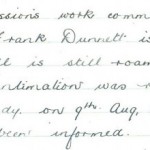 ssions work comm
Frank Dunnett is
l is still roam
ntimation was r
dy. on 9th Aug,
been informed.